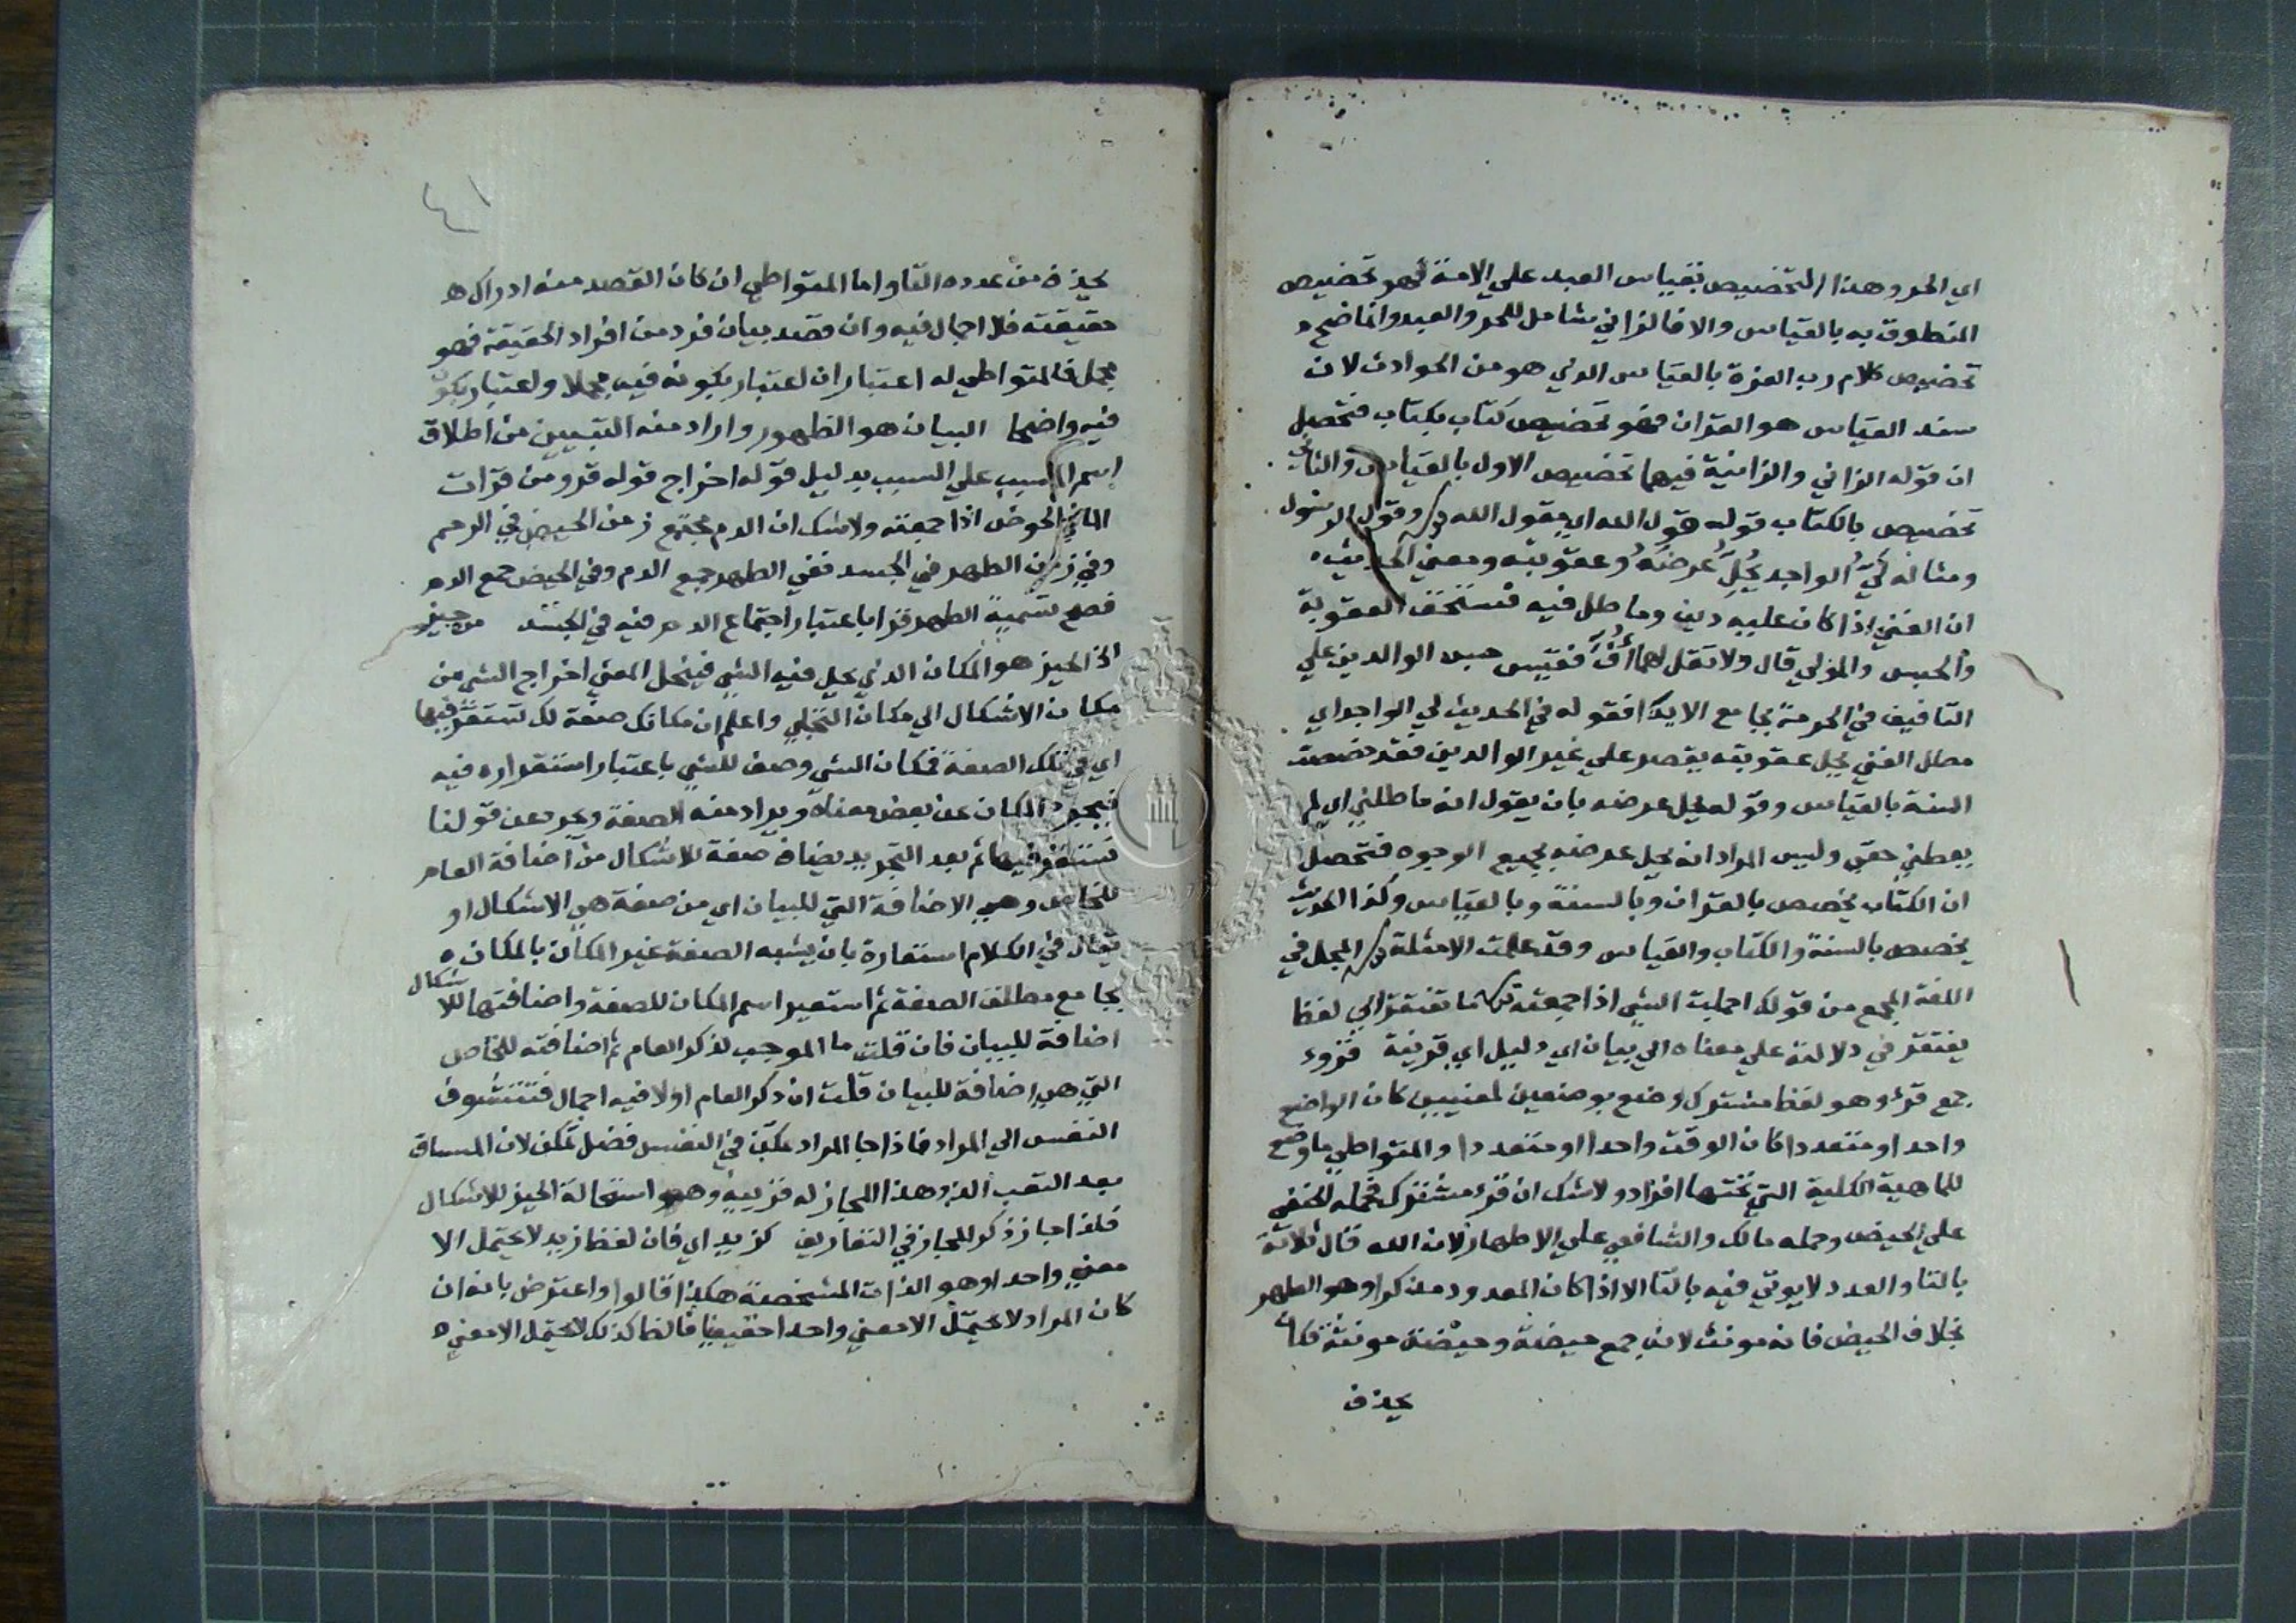 اي الحر وهذا التخصيص بقياس العبد علي الامة فهو تخصيص
المنطوق به بالقياس والا فالزاني شامل للحر والعبد وانما صح
تخصيص كلام رب العزة بالقياس الذي هو من الحوادث لان
سند القياس هو القران فهو تخصيص كتاب بكتاب فتحصل
ان قوله الزاني والزانية فيهما تخصيص الاول بالقياس والثاني
تخصيص بالكتاب قوله قول الله اي بقول الله وقول الرسول
ومثاله ليّ الواجد يُحِلّ عرضَهُ وعقوبته ومعني الحديث
ان الغني اذا كان عليه دين وماطل فيه فتستحق العقوبة
والحبس والمولي قال ولا تقل لهما أفّ فقيس حبس الوالدين علي
التافيف في الحرمة بجامع الايذا فقوله في الحديث لي الواجد اي
مطل الغني يحل عقوبته يقصر علي غير الوالدين فقد خصصت
السنة بالقياس وقوله يحل عرضه بان يقول انه ماطلني اي لم
يعطني حقي وليس المراد انه يحل عرضه بجميع الوجوه فتحصل
ان الكتاب يخصص بالقران وبالسنة وبالقياس وكذا الحديث
يخصص بالسنة والكتاب والقياس وقد علمت الامثلة المجمل في
اللغة المجمع من قولك اجملت الشي اذا جمعته ما تفتقر اي لفظ
يفتقر في دلالته علي معناه الي بيان اي دليل اي قرينة قروء
جمع قرؤ وهو لفظ مشترك وضع بوضعين لمعنيين كان الواضع
واحدا او متعددا كان الوقت واحدا او متعددا والمتواطي ما وضع
للماهية الكلية التي تحتها افراد ولا شك ان قرء مشترك فحمله الحنفي
علي الحيض وحمله مالك والشافعي علي الاطهار لان الله قال ثلاثة
بالتا والعدد لا يوتي فيه بالتا الا اذا كان المعدود مذكرا وهو الطهر
بخلاف الحيض فانه مونث لانه جمع حيضة وحيضة مونثة فكان
يحذف
٤١
يحذف من عدده التا واما المتواطي ان كان القصد منه ادراك
حقيقته فلا اجمال فيه وان قصد بيان فرد من افراد الحقيقة فهو
مجمل فالمتواطي له اعتباران اعتبار بكونه فيه مجملا واعتبار بكون
فيه واضحا البيان هو الظهور واراد منه التبيين من اطلاق
اسم المسبب علي السبب بدليل قوله اخراج قوله قرو من قرات
الما في الحوض اذا جمعته ولا شك ان الدم مجتمع زمن الحيض في الرحم
وفي زمن الطهر في الجسد ففي الطهر جمع الدم وفي الحيض جمع الدم
فصح تسمية الطهر قرا باعتبار اجتماع الدم فيه في الجسد من حيز
اذ الحيز هو المكان الذي يحل فيه الشي فينحل المعني اخراج الشي من
مكان الاشكال الي مكان التجلي واعلم ان مكانك صفة لك تستقر فيها
اي في تلك الصفة فمكان الشي وصف للشي باعتبار استقراره فيه
فيجرد المكان عن بعض معناه ويراد منه الصفة ويجرد عن قولنا
تستقر فيها ثم بعد التجريد يضاف صفة للاشكال من اضافة العام
للخاص وهي الاضافة التي للبيان اي من صفة هي الاشكال او
يقال في الكلام استعارة بان يشبه الصفة غير المكان بالمكان
بجامع مطلق الصفة ثم استعير اسم المكان للصفة واضافتها للاشكال
اضافة للبيان فان قلت ما الموجب لذكر العام ثم اضافته للخاص
التي هي اضافة للبيان قلت ان ذكر العام اولا فيه اجمال فتتشوف
النفس الي المراد فاذا جا المراد تمكن في النفس فضل تمكن لان المساق
بعد التعب الذ وهذا المجاز له قرينة وهو استحالة الحيز للاشكال
فلذا جاز ذكر المجاز في التعاريف كزيد اي فان لفظ زيد لا يحتمل الا
معني واحدا وهو الذات المشخصة هكذا قالوا واعترض بانه ان
كان المراد لا يحتمل الا معني واحدا حقيقيا فالظ كذلك لا يحتمل الا معني